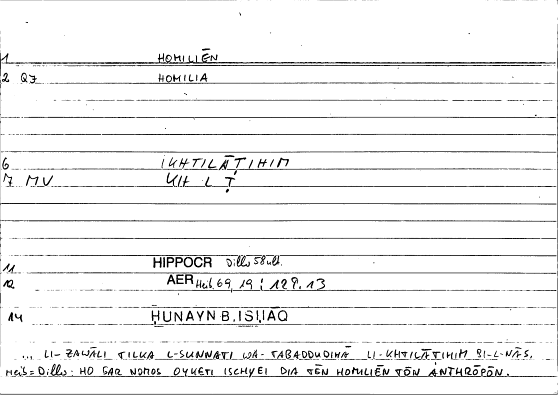 1 HOMILIĒN
2 QJ HOMILIA
6 IKHTILĀṬIHIM
7 MV KH L Ṭ
11 HIPPOCR Diller 58 ult.
12 AER Heib. 69, 19 : 129. 13
14 ḤUNAYN B. ISḤĀQ
... LI-ZAWĀLI TILKA L-SUNNATI WA-TABADDUDIHĀ LI-KHTILĀṬIHIM BI-L-NĀS.
Heib = Diller: HO GAR NOMOS OYKETI ISCHYEI DIA TĒN HOMILIĒN TŌN ANTHRŌPŌN.